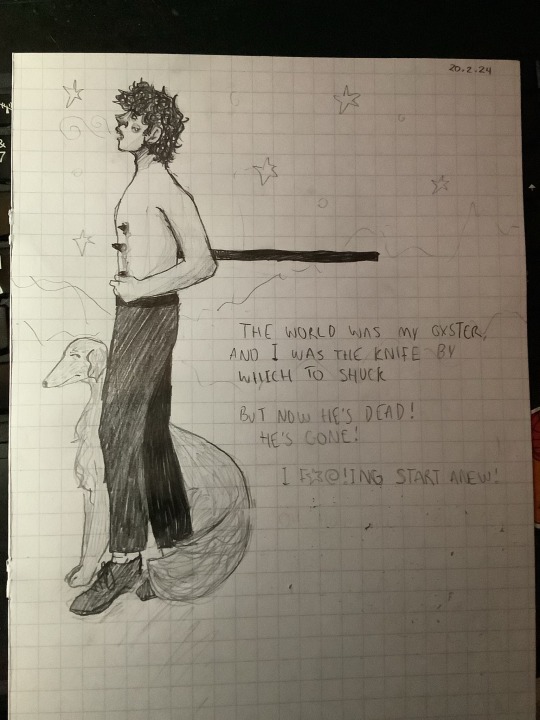 20.2.24
THE WORLD WAS MY OYSTER,
AND I WAS THE KNIFE BY
WHICH TO SHUCK
BUT NOW HE'S DEAD!
HE'S GONE!
I F$%@!ING START ANEW!